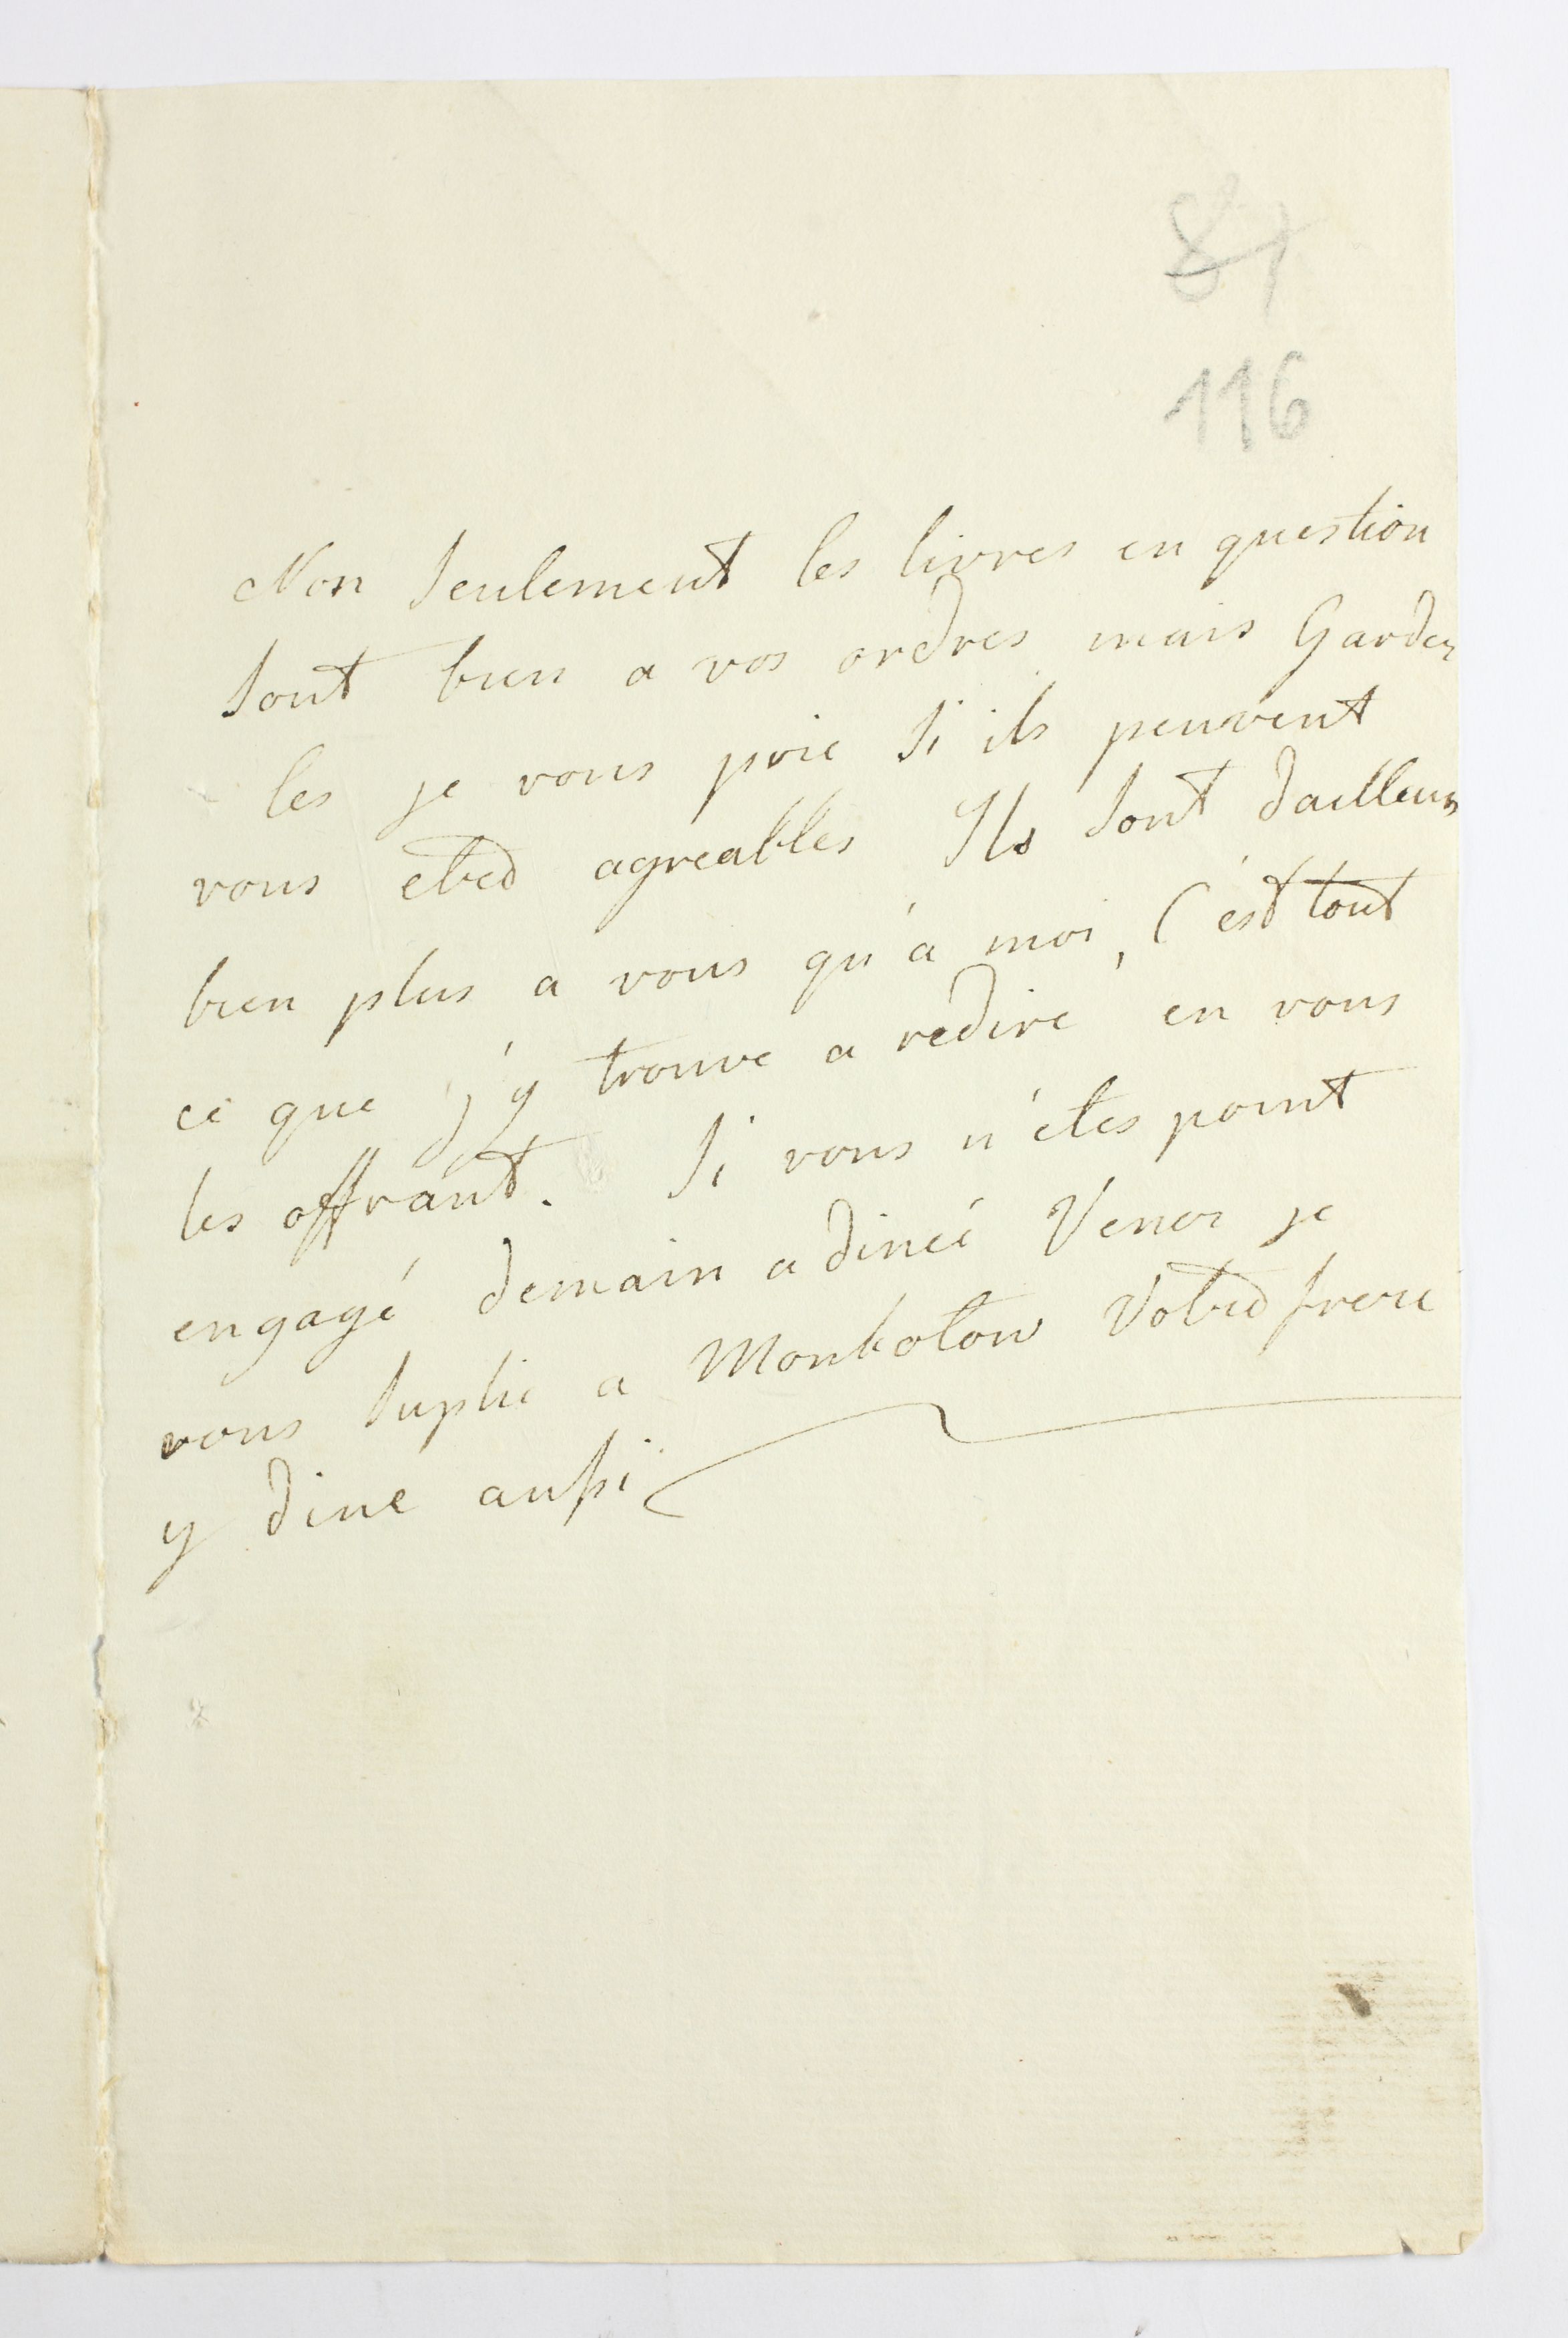 87
116
Non seulement les livres en question
sont bien a vos ordres mais Gardez
les je vous prie si ils peuvent
vous etre agreables Ils sont dailleurs
bien plus a vous qu'a moi, C'est tout
ce que j'y trouve a redire en vous
les offrant. Si vous n'etes point
engagé demain a dineé Venez je
vous suplie a Monkotow Votre frere
y dine aussi